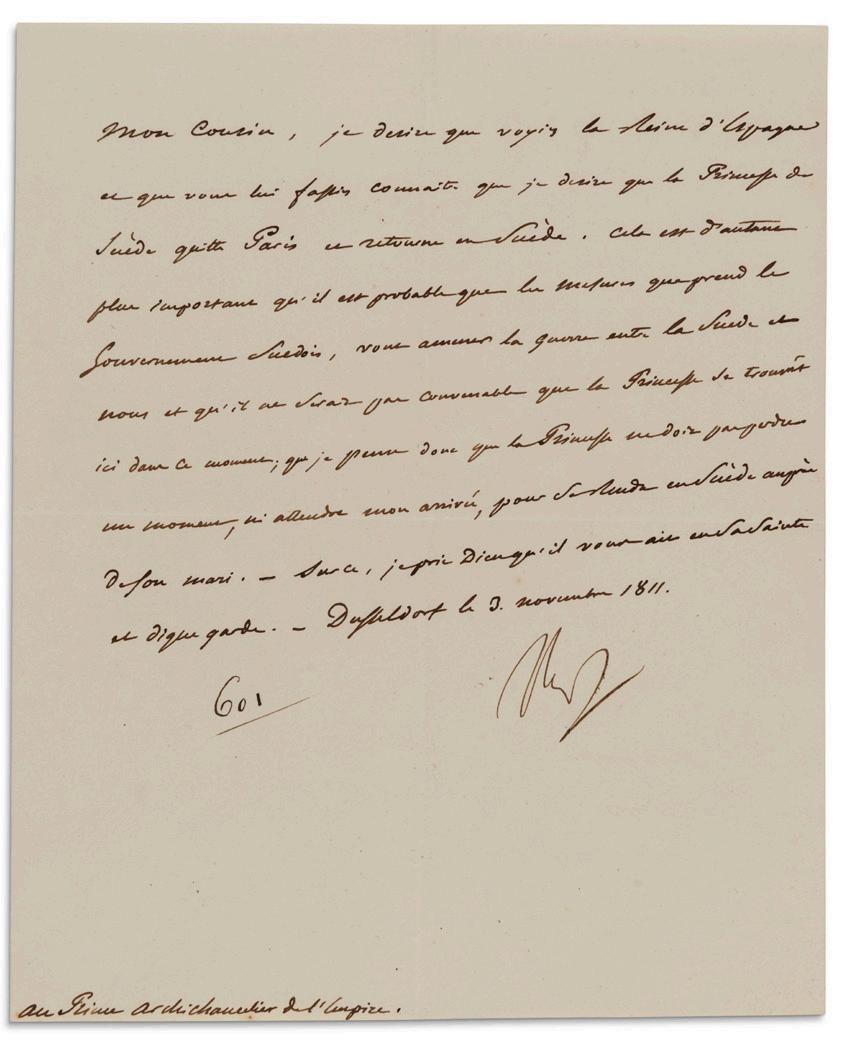 Mon Cousin, je desire que voyiez la Reine d'Espagne
et que vous lui fassiez connaitre que je desire que la Princesse de
Suède quitte Paris et retourne en Suède. Cela est d'autant
plus important qu'il est probable que les mesures que prend le
Gouvernement Suedois, vont amener la guerre entre la Suede et
nous et qu'il ne serait pas convenable que la Princesse se trouvât
ici dans ce moment; que je pense donc que la Princesse ne doit pas perdre
un moment, ni attendre mon arrivée, pour se rendre en Suède auprès
de son mari. — Sur ce, je prie Dieu qu'il vous ait en sa sainte
et digne garde. — Dusseldorf le 3. novembre 1811.
601
Au Prince archichancelier de l'Empire.